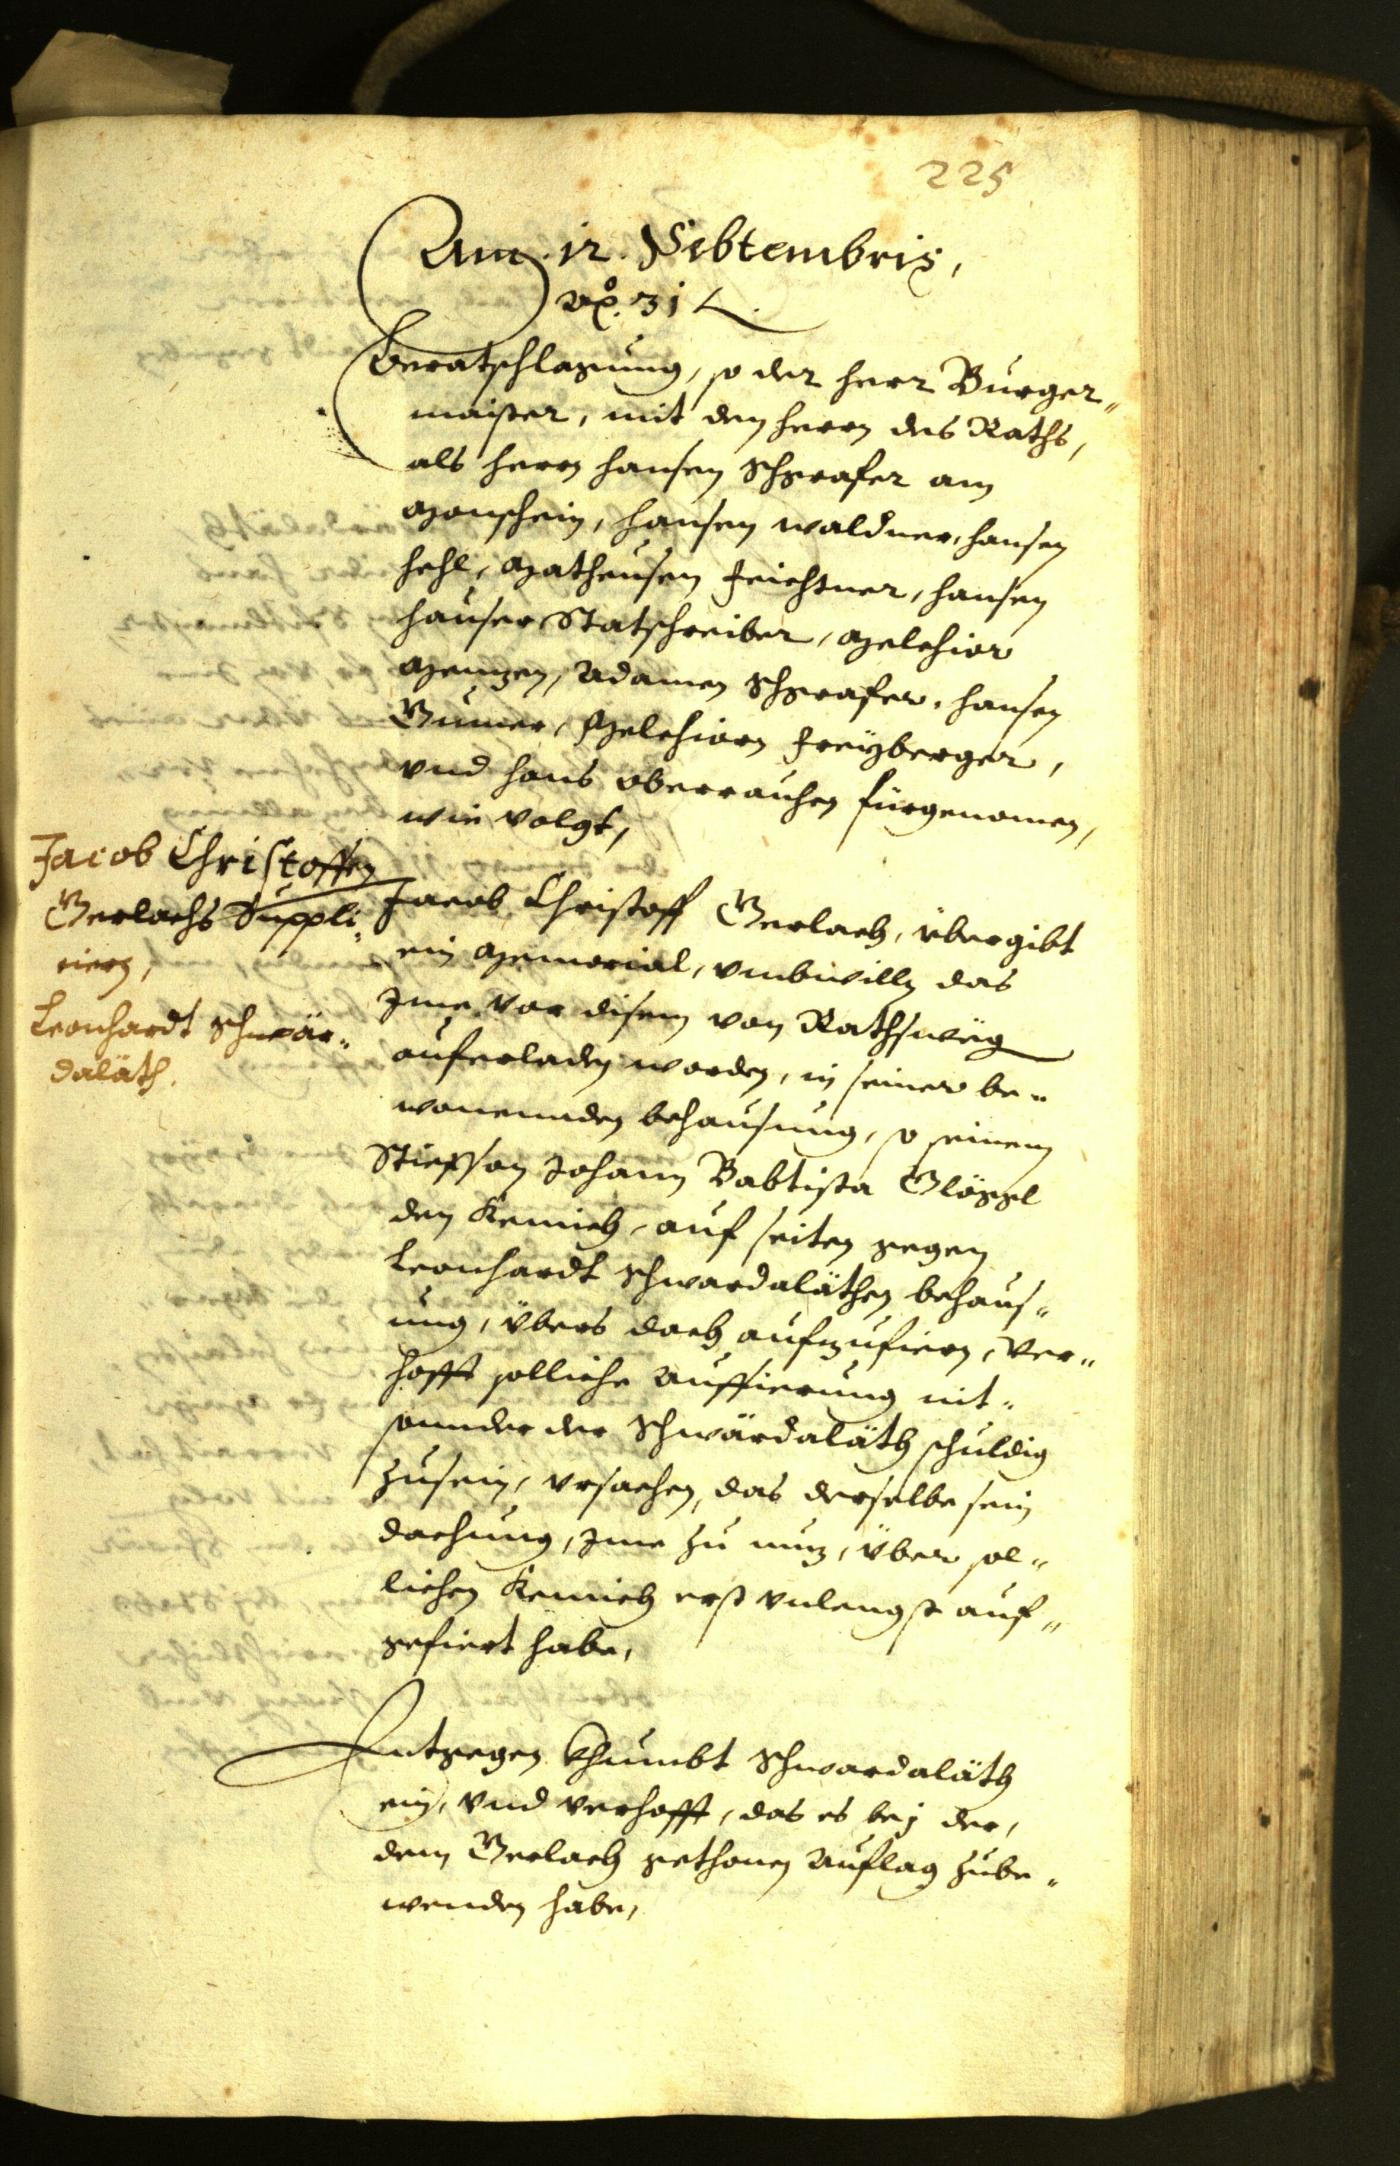 225
Am 12 Sebtembris,
aõ. 31
Beratschlagung, so der herr Burger„
maister, mit den herrn des Raths,
als herrn hansen Schgrafer am
Monschein, hansen waldner, hansen
hehl, Matheusen feichtner, hansen
hauser Statschreiber, Melchior
Menzen, Adamen Schgrafer, hansen
Gumer, Melchiorn freÿberger,
vnd hans oberrauchen fürgenomen,
wie volgt,
Jacob Christoffen
Gerlachs Suppli„
ciern,
Leonhardt Schwär„
daläth.
Jacob Christoff Gerlach, übergibt
ein Memorial, vmbwilln das
Jme vor disem von Rathsweg
auferladen worden, in seiner be„
wonennden behausung, so seinem
Stiefson Johann Babtista Glöggl
den Kemich, auf seiten gegen
Leonhardt Schwardaläthen behaus„
ung, übers dach aufzufiern, ver„
hofft solliche Auffierung nit„
sonnder der Schwärdaläth schuldig
zusein, vrsachen, das derselbe sein
dachung, Jme zu nuz, über sol„
lichen Kemich erst vnlengst auf„
gefiert habe,
Entgegen Khumbt Schwardaläth
ein, vnd verhofft, das es beÿ der,
dem Gerlach gethonen Auflag zube„
wenden habe,